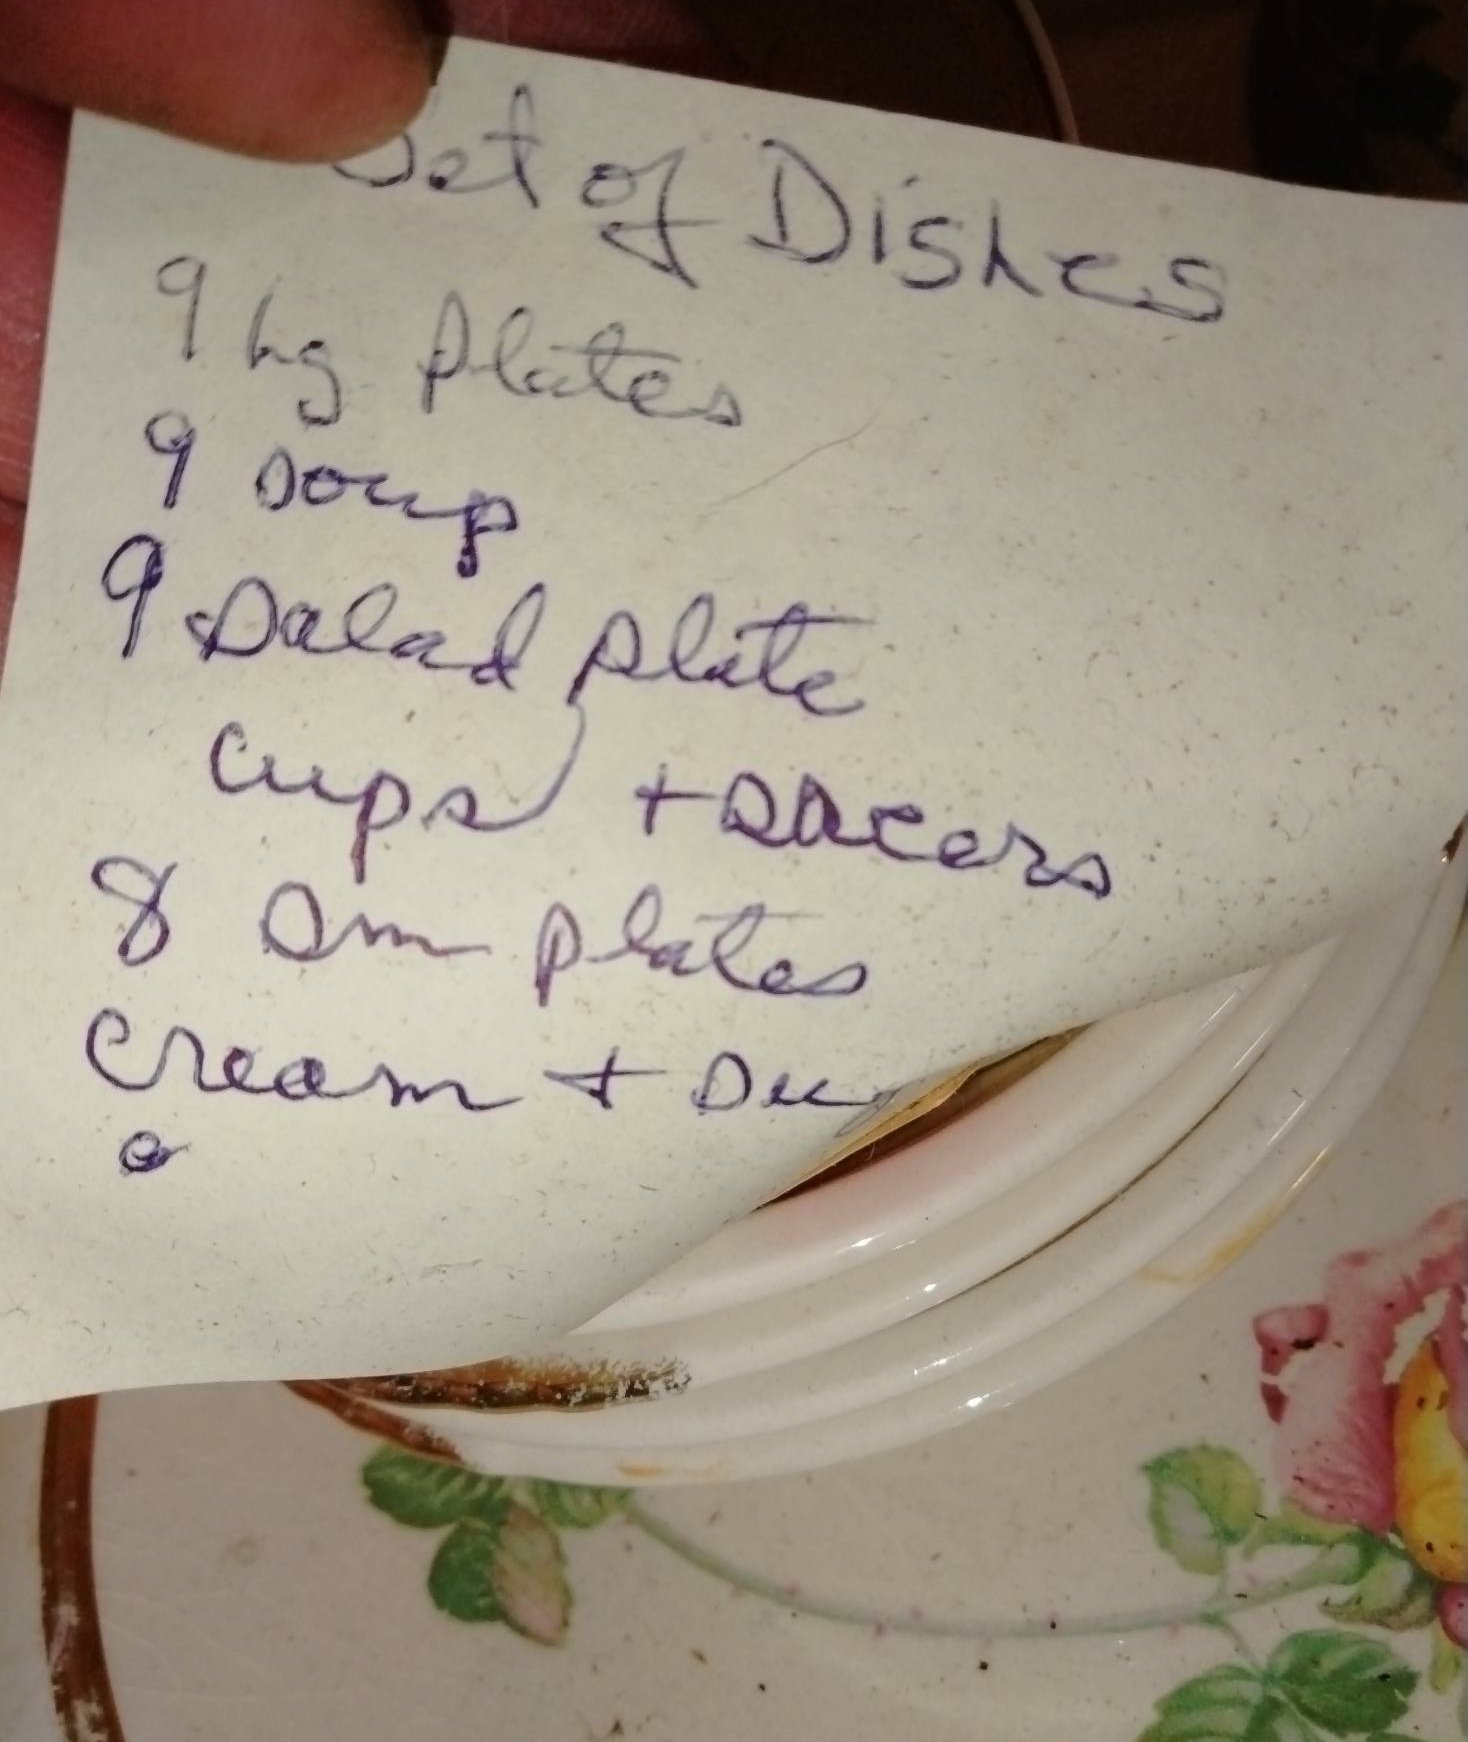 Set of Dishes
9 lg plates
9 soup
9 Salad plate
Cups + Sacers
8 Sm plates
Cream +